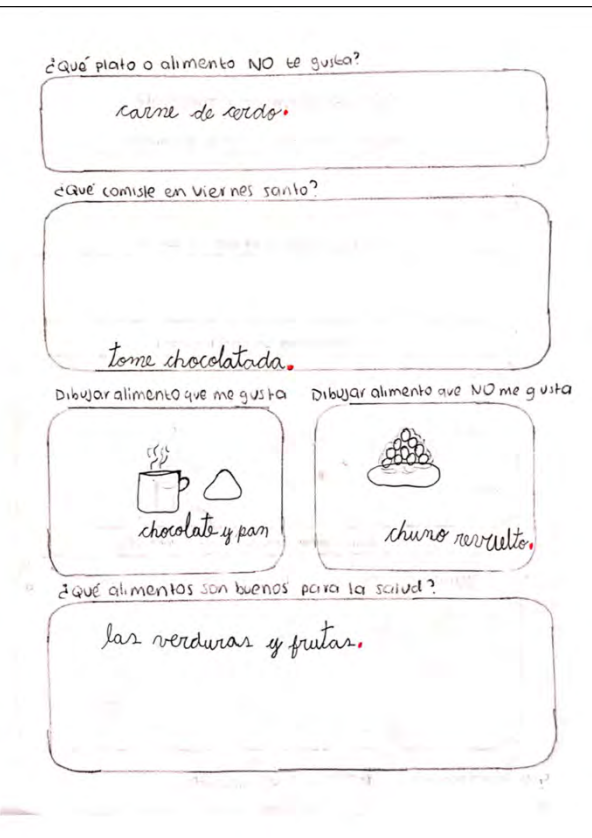 ¿Qué plato o alimento NO te gusta?
carne de cerdo.
¿Qué comiste en viernes santo?
tome chocolatada.
Dibujar alimento que me gusta
Dibujar alimento que NO me gusta
chocolate y pan
chuno revuelto.
¿Qué alimentos son buenos para la salud?
las verduras y frutas.